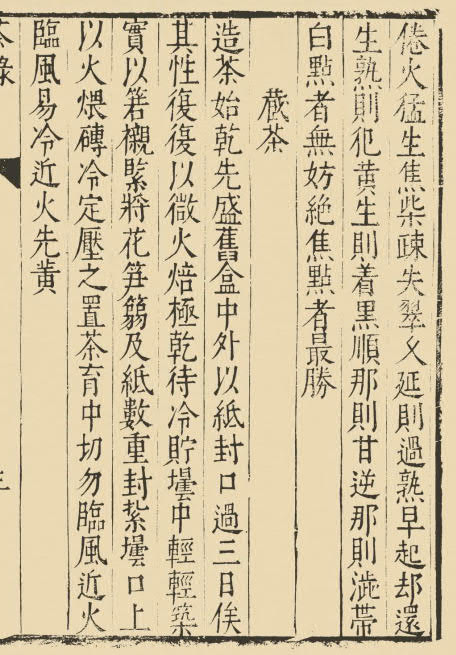 倦火猛生焦柴疎失翠乆延則過熟早起却還
生熟則犯黄生則着黒順那則甘逆那則澁帶
白㸃者無妨絶焦㸃者最勝
蔵茶
造茶始乾先盛舊盒中外以紙封口過三日俟
其性復復以微火焙極乾待冷貯壜中輕輕築
實以箬襯緊將花笋篛及紙數重封紥壜口上
以火煨磚冷定壓之置茶育中切勿臨風近火
臨風易冷近火先黄
茶錄